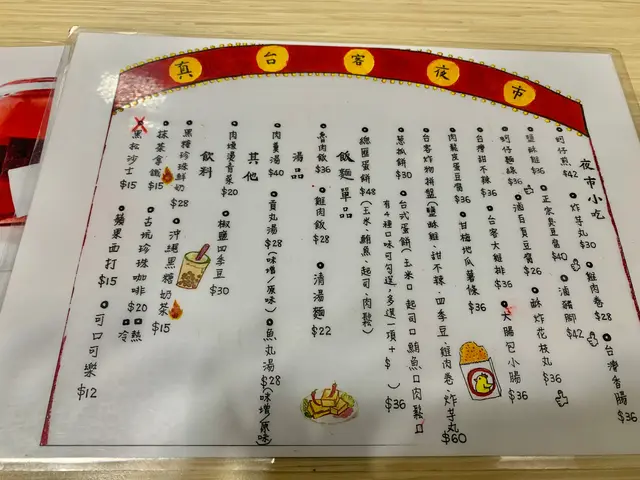 真台客夜市
夜市小吃
蚵仔煎 $42
炸芋丸 $30
雞肉卷 $28
台灣香腸 $36
鹽酥雞 $36
正宗臭豆腐 $40
滷豬腳 $42
蚵仔麵線 $36
滷百頁豆腐 $26
酥炸花枝丸 $36
台灣甜不辣 $36
台客大雞排 $36
大腸包小腸 $36
脆皮蛋豆腐 $36
甘梅地瓜薯條 $36
台客炸物拼盤(鹽酥雞、甜不辣、四季豆、雞肉卷、炸芋丸 $60
蔥抓餅 $30
台式蛋餅(玉米口起司口鮪魚口肉鬆口
有4種口味可勾選,多選一項+$ ) $36
總匯蛋餅 $48 (玉米、鮪魚、起司、肉鬆)
飯麵單品
魯肉飯 $36
雞肉飯 $28
清湯麵 $22
湯品
肉羹湯 $40
貢丸湯 $28 (味增/原味)
魚丸湯 $28 (味增/原味)
其他
肉燥燙青菜 $20
椒鹽四季豆 $30
飲料
黑糖珍珠鮮奶 $28
沖繩黑糖奶茶 $15
抹茶拿鐵 $15
古坑珍珠咖啡 $20 熱 冷
黑松沙士 $15
蘋果西打 $15
可口可樂 $12